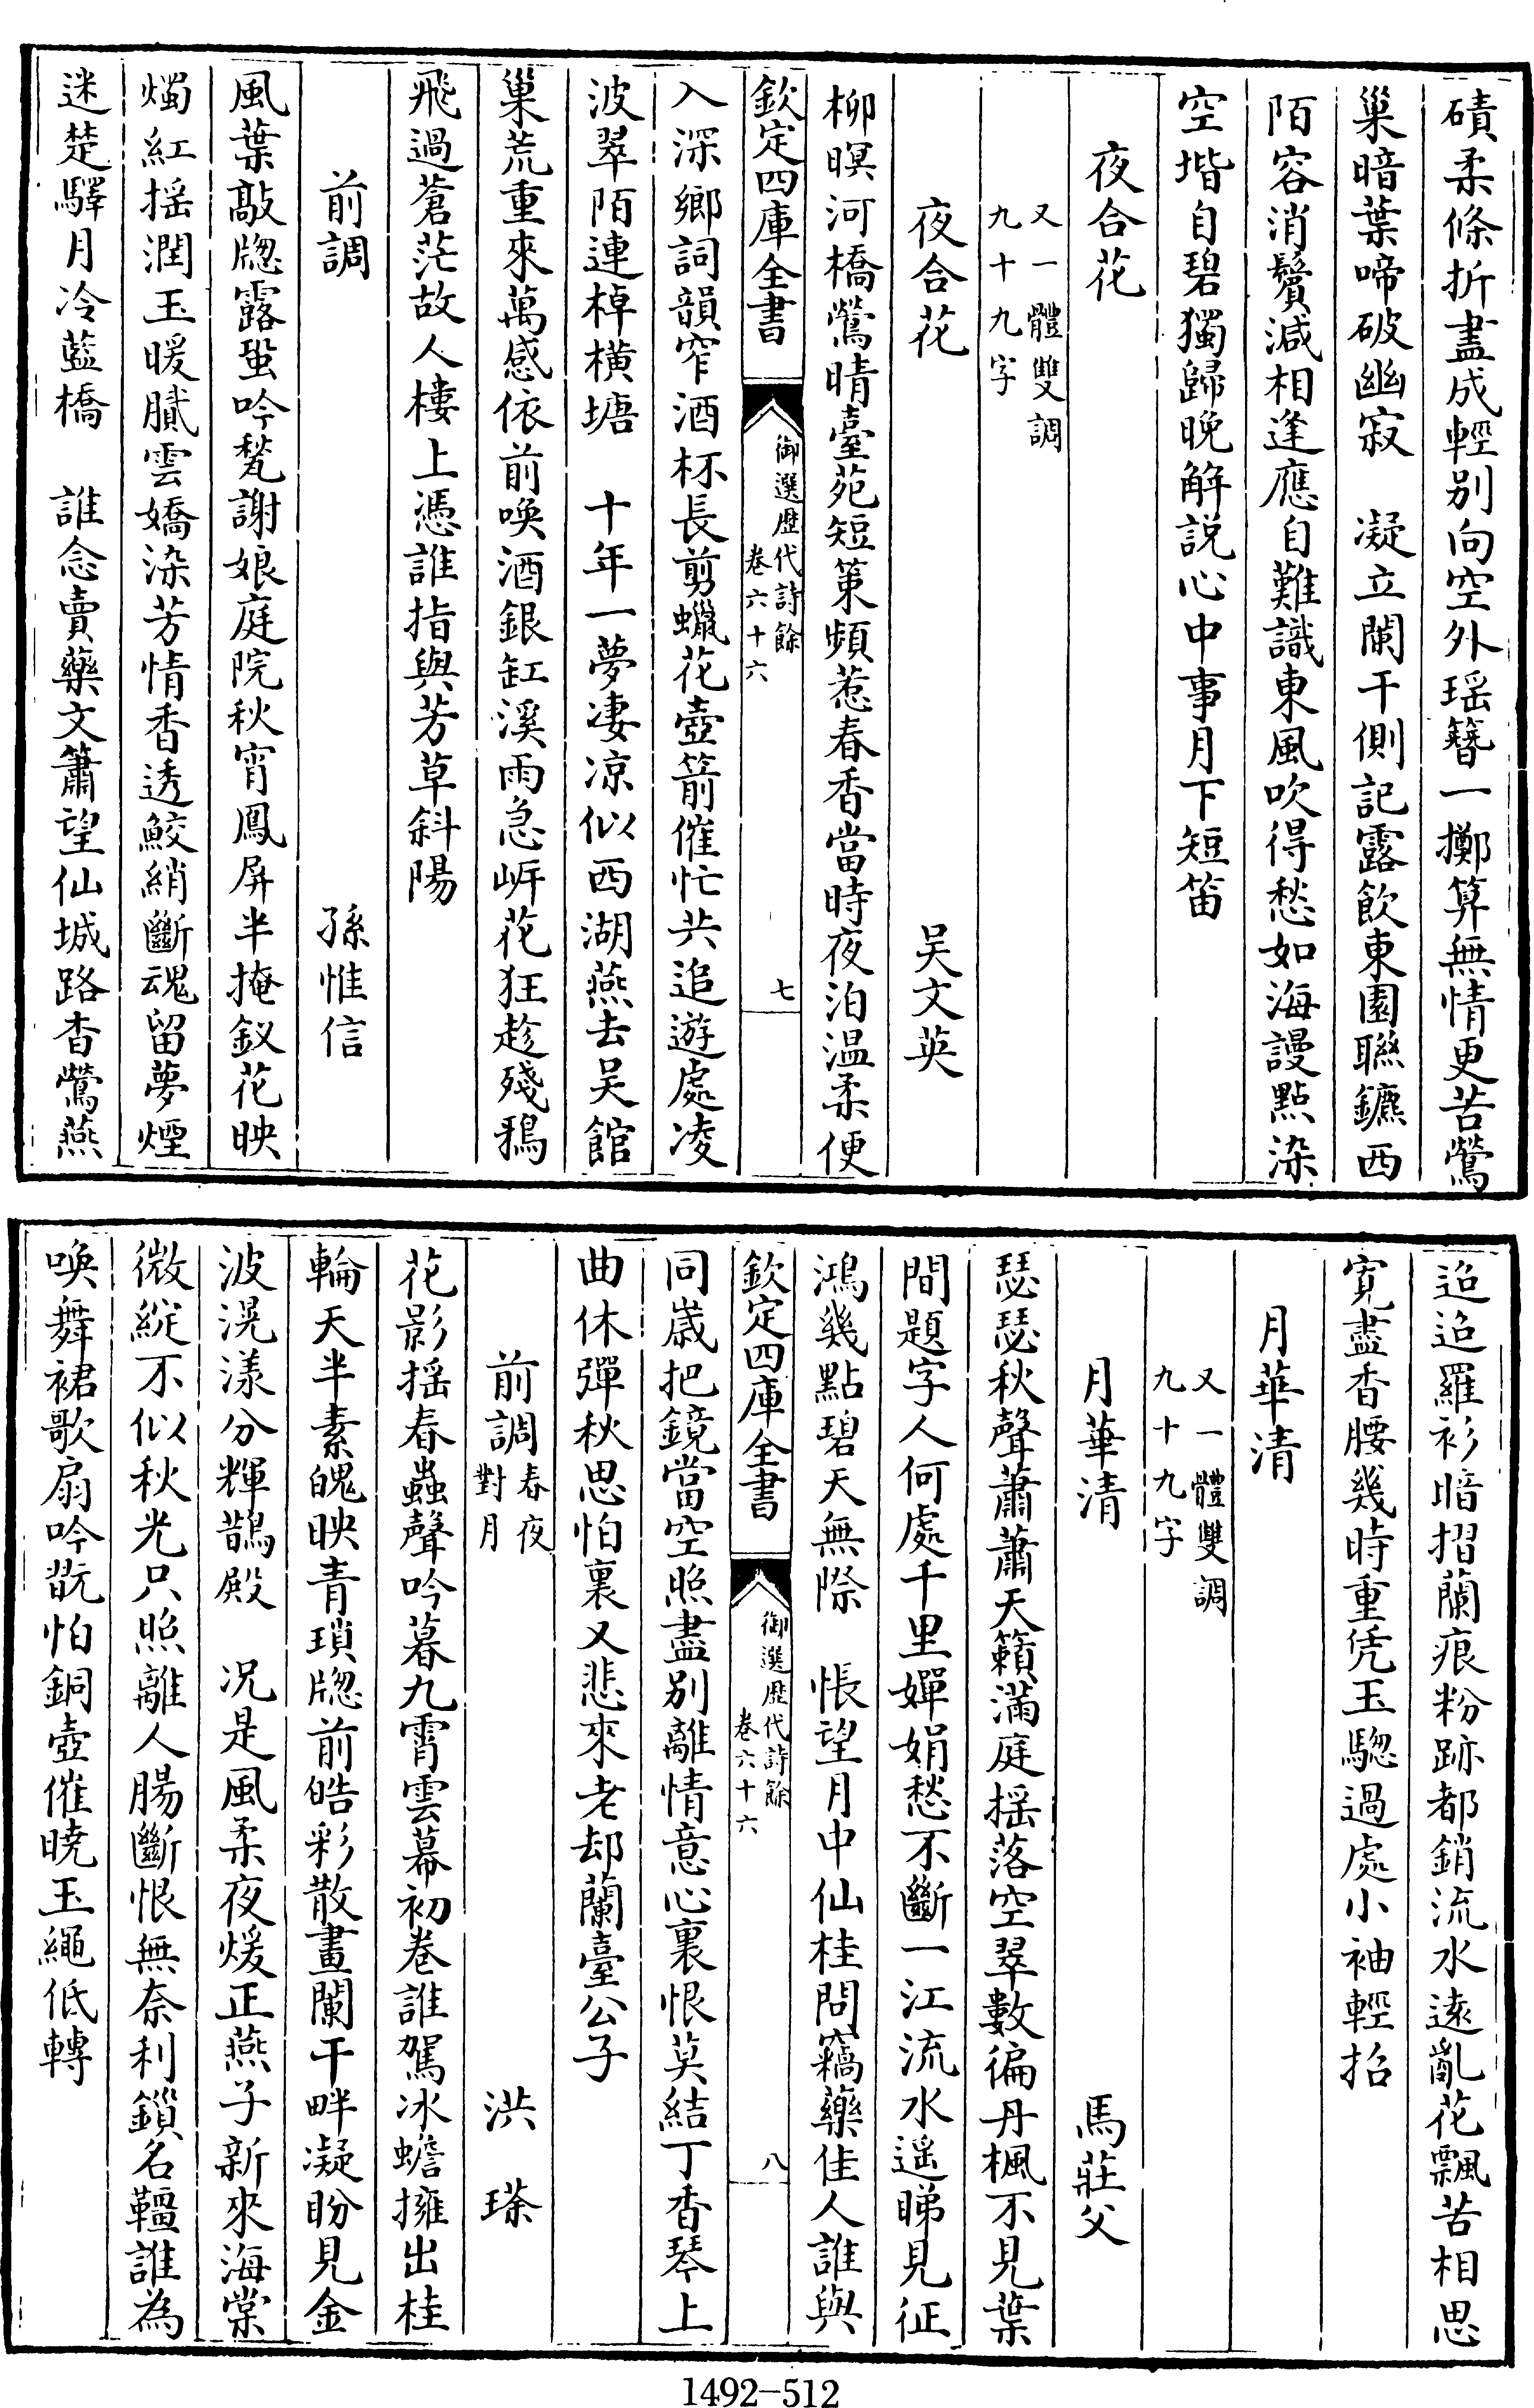 磧柔條折盡成輕别向空外瑶簪一擲算無情更苦鶯
巢暗葉啼破幽寂　凝立闌干側記露飲東園聯鑣西
陌容消鬢減相逢應自難識東風吹得愁如海謾點染
空堦自碧獨歸晚解説心中事月下短笛
夜合花
又一體雙調
九十九字
夜合花　吴文英
柳暝河橋鶯晴臺苑短策頻惹春香當時夜泊温柔便
欽定四庫全書
御選歴代詩餘
卷六十六
七
入深鄉詞韻窄酒杯長剪蠟花壺箭催忙共追遊處凌
波翠陌連棹横塘　十年一夢凄凉似西湖燕去吴館
巢荒重來萬感依前唤酒銀缸溪雨急岍花狂趁殘鴉
飛過蒼茫故人樓上憑誰指與芳草斜陽
前調　孫惟信
風葉敲牎露蛩吟甃謝娘庭院秋宵鳳屏半掩釵花映
燭紅摇潤玉暖膩雲嬌染芳情香透鮫綃斷魂留夢煙
迷楚驛月冷藍橋　誰念賣藥文簫望仙城路杳鶯燕
迢迢羅衫暗摺蘭痕粉跡都銷流水逺亂花飄苦相思
寛盡香腰幾時重凭玉驄過處小袖輕招
月華清
又一體雙調
九十九字
月華清　馬莊父
瑟瑟秋聲蕭蕭天籟滿庭揺落空翠數徧丹楓不見葉
間題字人何處千里嬋娟愁不斷一江流水遥睇見征
鴻幾點碧天無際　悵望月中仙桂問竊藥佳人誰與
欽定四庫全書
御選歴代詩餘
卷六十六
八
同嵗把鏡當空照盡别離情意心裏恨莫結丁香琴上
曲休彈秋思怕裏又悲來老却蘭臺公子
前調春夜對月　洪　瑹
花影摇春蟲聲吟暮九霄雲幕初卷誰駕冰蟾擁出桂
輪天半素魄映青瑣牎前皓彩散畫闌干畔凝盼見金
波滉漾分輝鵲殿　况是風柔夜煖正燕子新來海棠
微綻不似秋光只照離人腸斷恨無奈利鎻名韁誰為
唤舞裙歌扇吟翫怕銅壺催曉玉繩低轉
1492-512